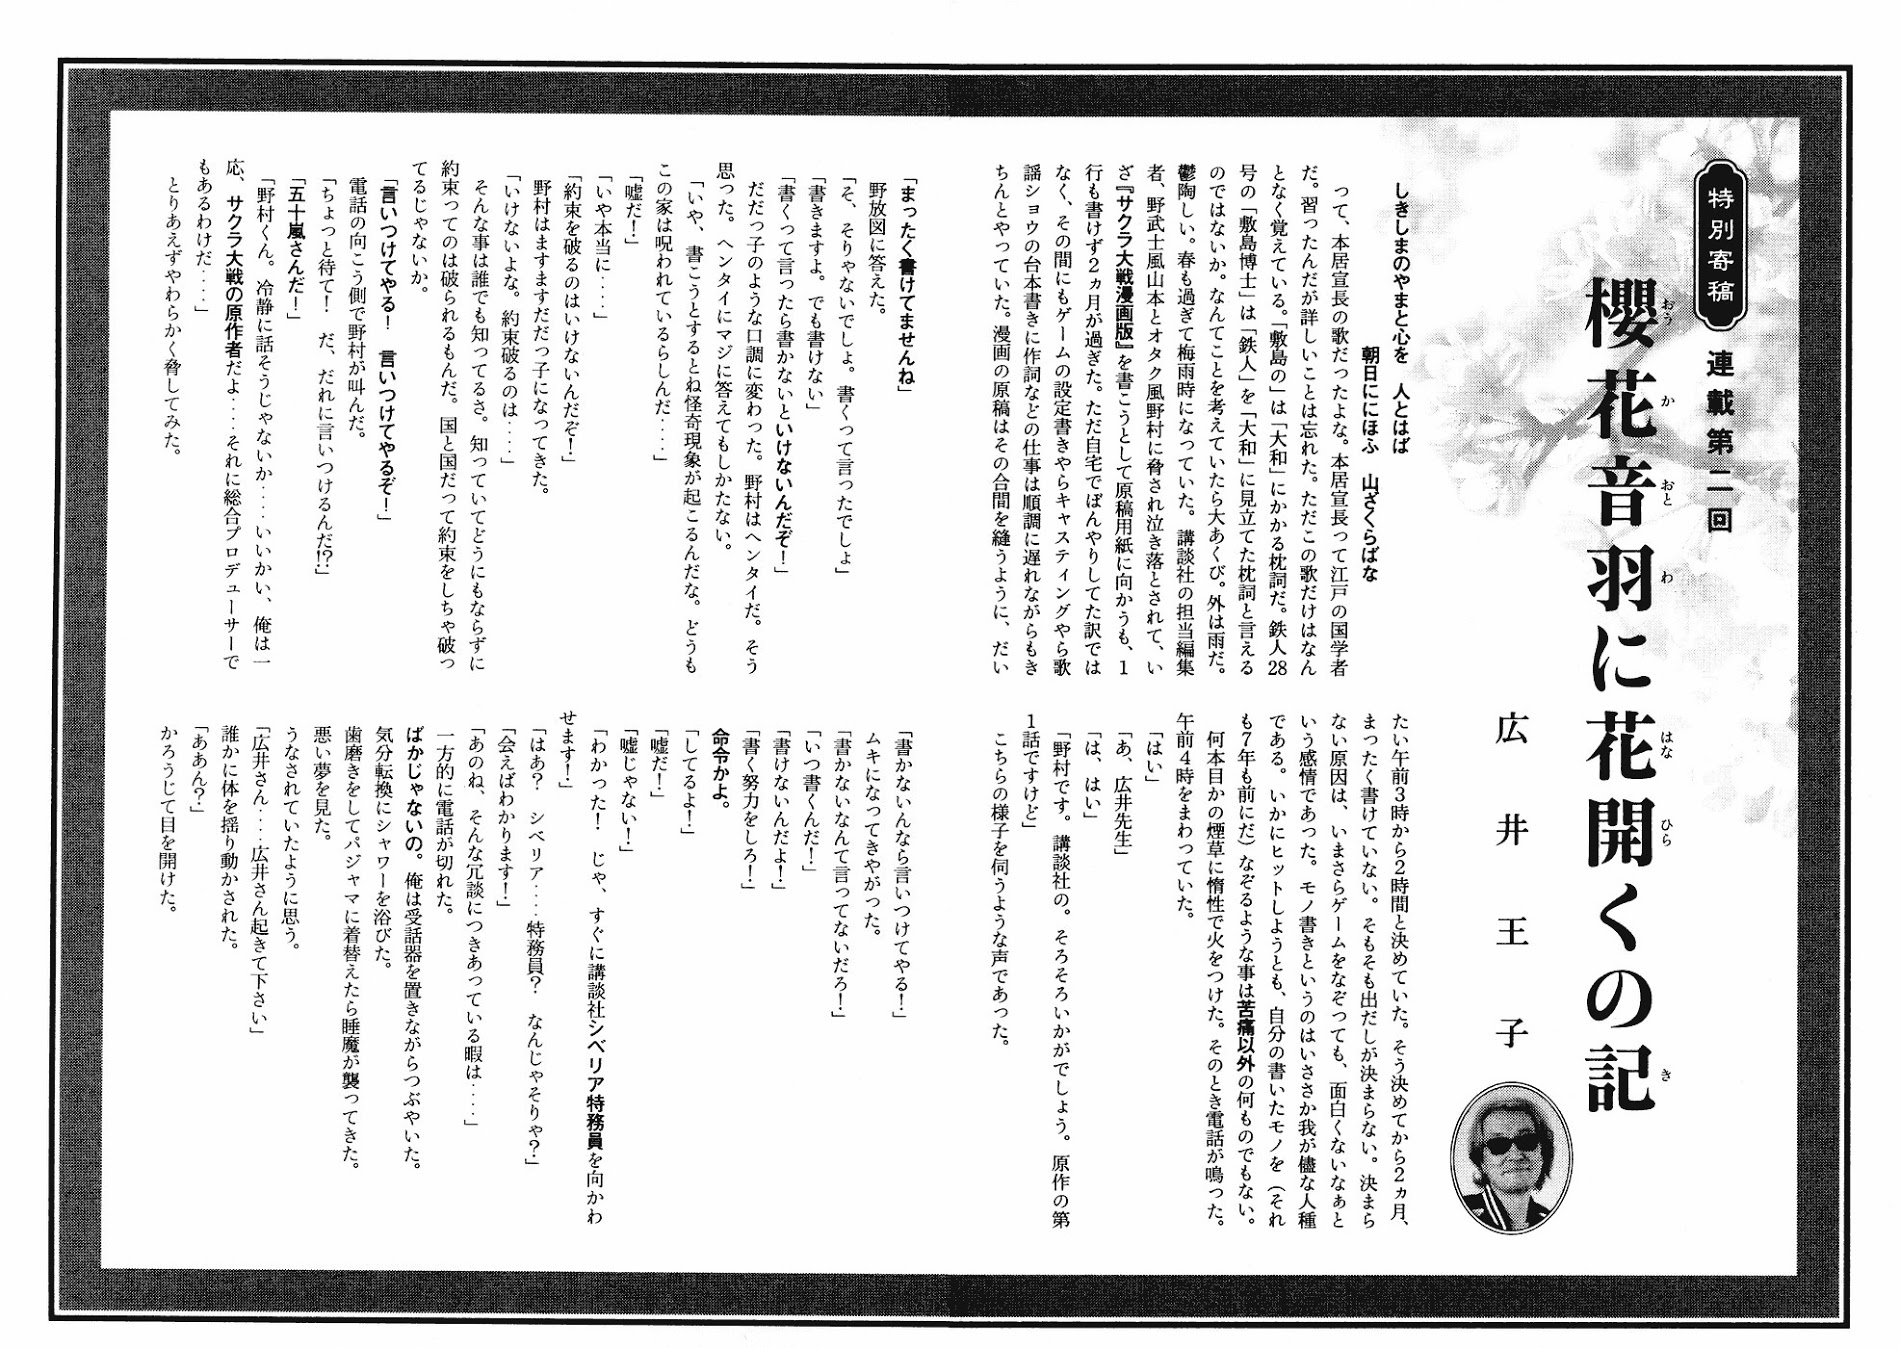 特別寄稿
連載第二回
おう か おと わ はな ひら き
櫻花音羽に花開くの記
広井王子
しきしまのやまと心を 人とはば
朝日ににほふ 山ざくらばな
って、本居宣長の歌だったよな。本居宣長って江戸の国学者
だ。習ったんだが詳しいことは忘れた。ただこの歌だけはなん
となく覚えている。「敷島の」は「大和」にかかる枕詞だ。鉄人28
号の「敷島博士」は「鉄人」を「大和」に見立てた枕詞と言える
のではないか。なんてことを考えていたら大あくび。外は雨だ。
鬱陶しい。春も過ぎて梅雨時になっていた。講談社の担当編集
者、野武士風山本とオタク風野村に脅され泣き落とされて、い
ざ『サクラ大戦漫画版』を書こうとして原稿用紙に向かうも、1
行も書けず2ヵ月が過ぎた。ただ自宅でぼんやりしてた訳では
なく、その間にもゲームの設定書きやらキャスティングやら歌
謡ショウの台本書きに作詞などの仕事は順調に遅れながらもき
ちんとやっていた。漫画の原稿はその合間を縫うように、だい
たい午前3時から2時間と決めていた。そう決めてから2ヵ月、
まったく書けていない。そもそも出だしが決まらない。決まら
ない原因は、いまさらゲームをなぞっても、面白くないなぁと
いう感情であった。モノ書きというのはいささか我が儘な人種
である。いかにヒットしようとも、自分の書いたモノを（それ
も7年も前にだ）なぞるような事は苦痛以外の何ものでもない。
何本目かの煙草に惰性で火をつけた。そのとき電話が鳴った。
午前4時をまわっていた。
「はい」
「あ、広井先生」
「は、はい」
「野村です。講談社の。そろそろいかがでしょう。原作の第
1話ですけど」
こちらの様子を伺うような声であった。
「まったく書けてませんね」
野放図に答えた。
「そ、そりゃないでしょ。書くって言ったでしょ」
「書きますよ。でも書けない」
「書くって言ったら書かないといけないんだぞ！」
だだっ子のような口調に変わった。野村はヘンタイだ。そう
思った。ヘンタイにマジに答えてもしかたない。
「いや、書こうとするとね怪奇現象が起こるんだな。どうも
この家は呪われているらしんだ‥‥」
「嘘だ！」
「いや本当に‥‥」
「約束を破るのはいけないんだぞ！」
野村はますますだだっ子になってきた。
「いけないよな。約束破るのは‥‥」
そんな事は誰でも知ってるさ。知っていてどうにもならずに
約束ってのは破られるもんだ。国と国だって約束をしちゃ破っ
てるじゃないか。
「言いつけてやる！ 言いつけてやるぞ！」
電話の向こう側で野村が叫んだ。
「ちょっと待て！ だ、だれに言いつけるんだ!?」
「五十嵐さんだ！」
「野村くん。冷静に話そうじゃないか‥‥いいかい、俺は一
応、サクラ大戦の原作者だよ‥‥それに総合プロデューサーで
もあるわけだ‥‥」
とりあえずやわらかく脅してみた。
「書かないんなら言いつけてやる！」
ムキになってきやがった。
「書かないなんて言ってないだろ！」
「いつ書くんだ！」
「書けないんだよ！」
「書く努力をしろ！」
命令かよ。
「してるよ！」
「嘘だ！」
「嘘じゃない！」
「わかった！ じゃ、すぐに講談社シベリア特務員を向かわ
せます！」
「はあ？ シベリア‥‥特務員？ なんじゃそりゃ？」
「会えばわかります！」
「あのね、そんな冗談につきあっている暇は‥‥」
一方的に電話が切れた。
ばかじゃないの。俺は受話器を置きながらつぶやいた。
気分転換にシャワーを浴びた。
歯磨きをしてパジャマに着替えたら睡魔が襲ってきた。
悪い夢を見た。
うなされていたように思う。
「広井さん‥‥広井さん起きて下さい」
誰かに体を揺り動かされた。
「ああん？」
かろうじて目を開けた。